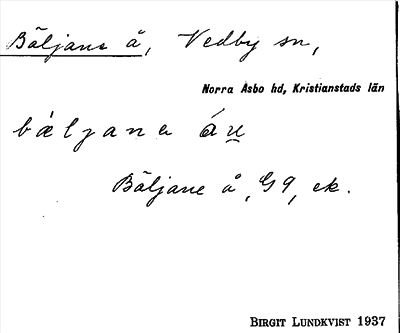 Bäljane å, Vedby sn,
Norra Åsbo hd, Kristianstads län
bæljana áu̲
Bäljane å, G9, ek.
BIRGIT LUNDKVIST 1937